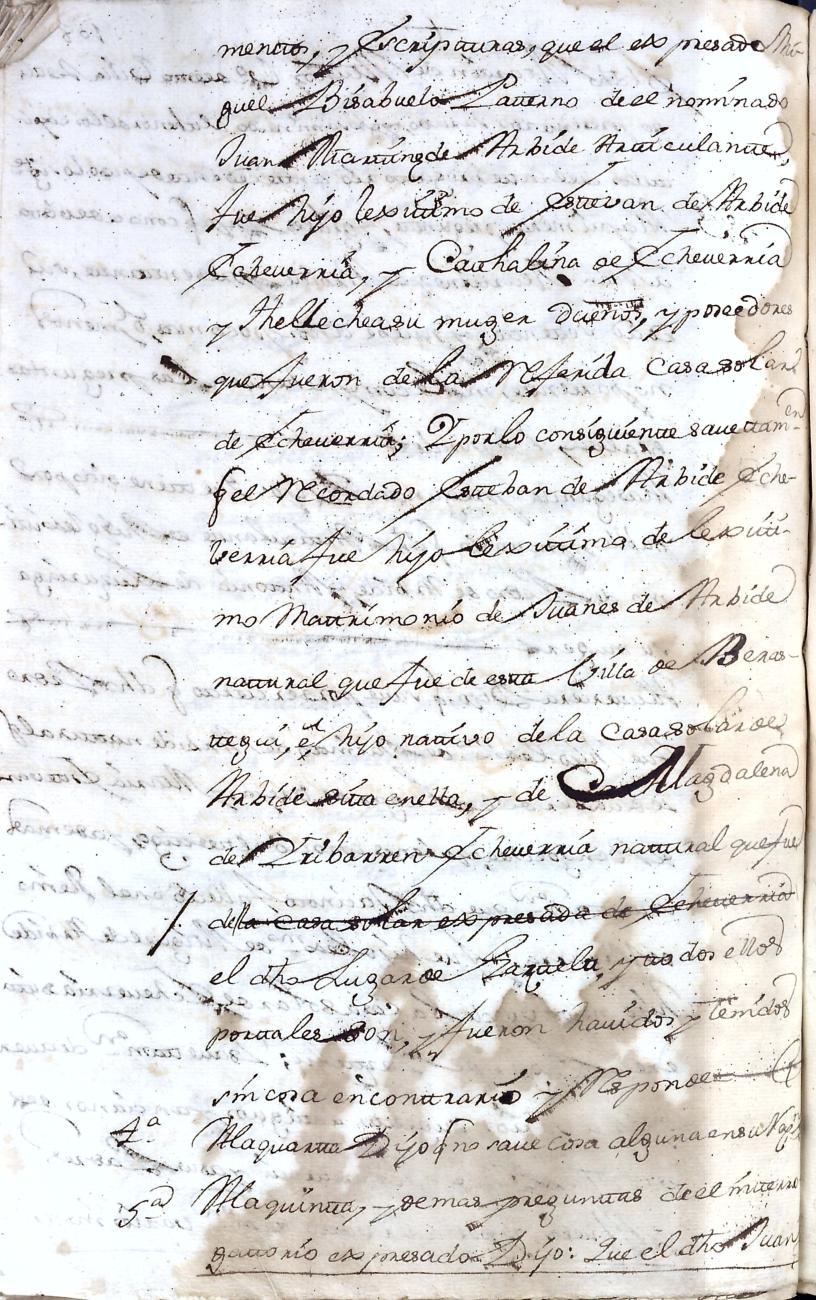 mentos, y Escripturas, que el expresado Mi-
guel Bisabuelo Paterno de el nominado
Juan Martinz de Arbide Articulante,
fue hijo lexittimo de Estevan de Arbide
Echeverria, y Cathalina de Echeverria
y Thellechea su muger Dueños, y poseedores
que fueron de la Referida Casa solar
de Echeverria; Y por lo consiguiente save ttamen
q el Recordado Esteban de Arbide Eche-
verria fue hijo lexittimo de lexitti-
mo Mattrimonio de Juanes de Arbide
nattural que fue de esta Villa de Beras-
ttegui, é hijo nattivo de la Casa solar de
Arbide sitta en ella, y de Magdalena
de Yribarren Echeverria nattural que fue
de la casa solar expresada de Echeverria
el dho Lugar de y ttodos ellos
por ttales son, y fueron havidos y tenidos
sin cosa en conttrario y Responde
4a A la quartta Dijo q no save cosa alguna en su
5a A la quintta, y demas preguntas de el interro
gattorio expresado Dijo: Que el dho Juan